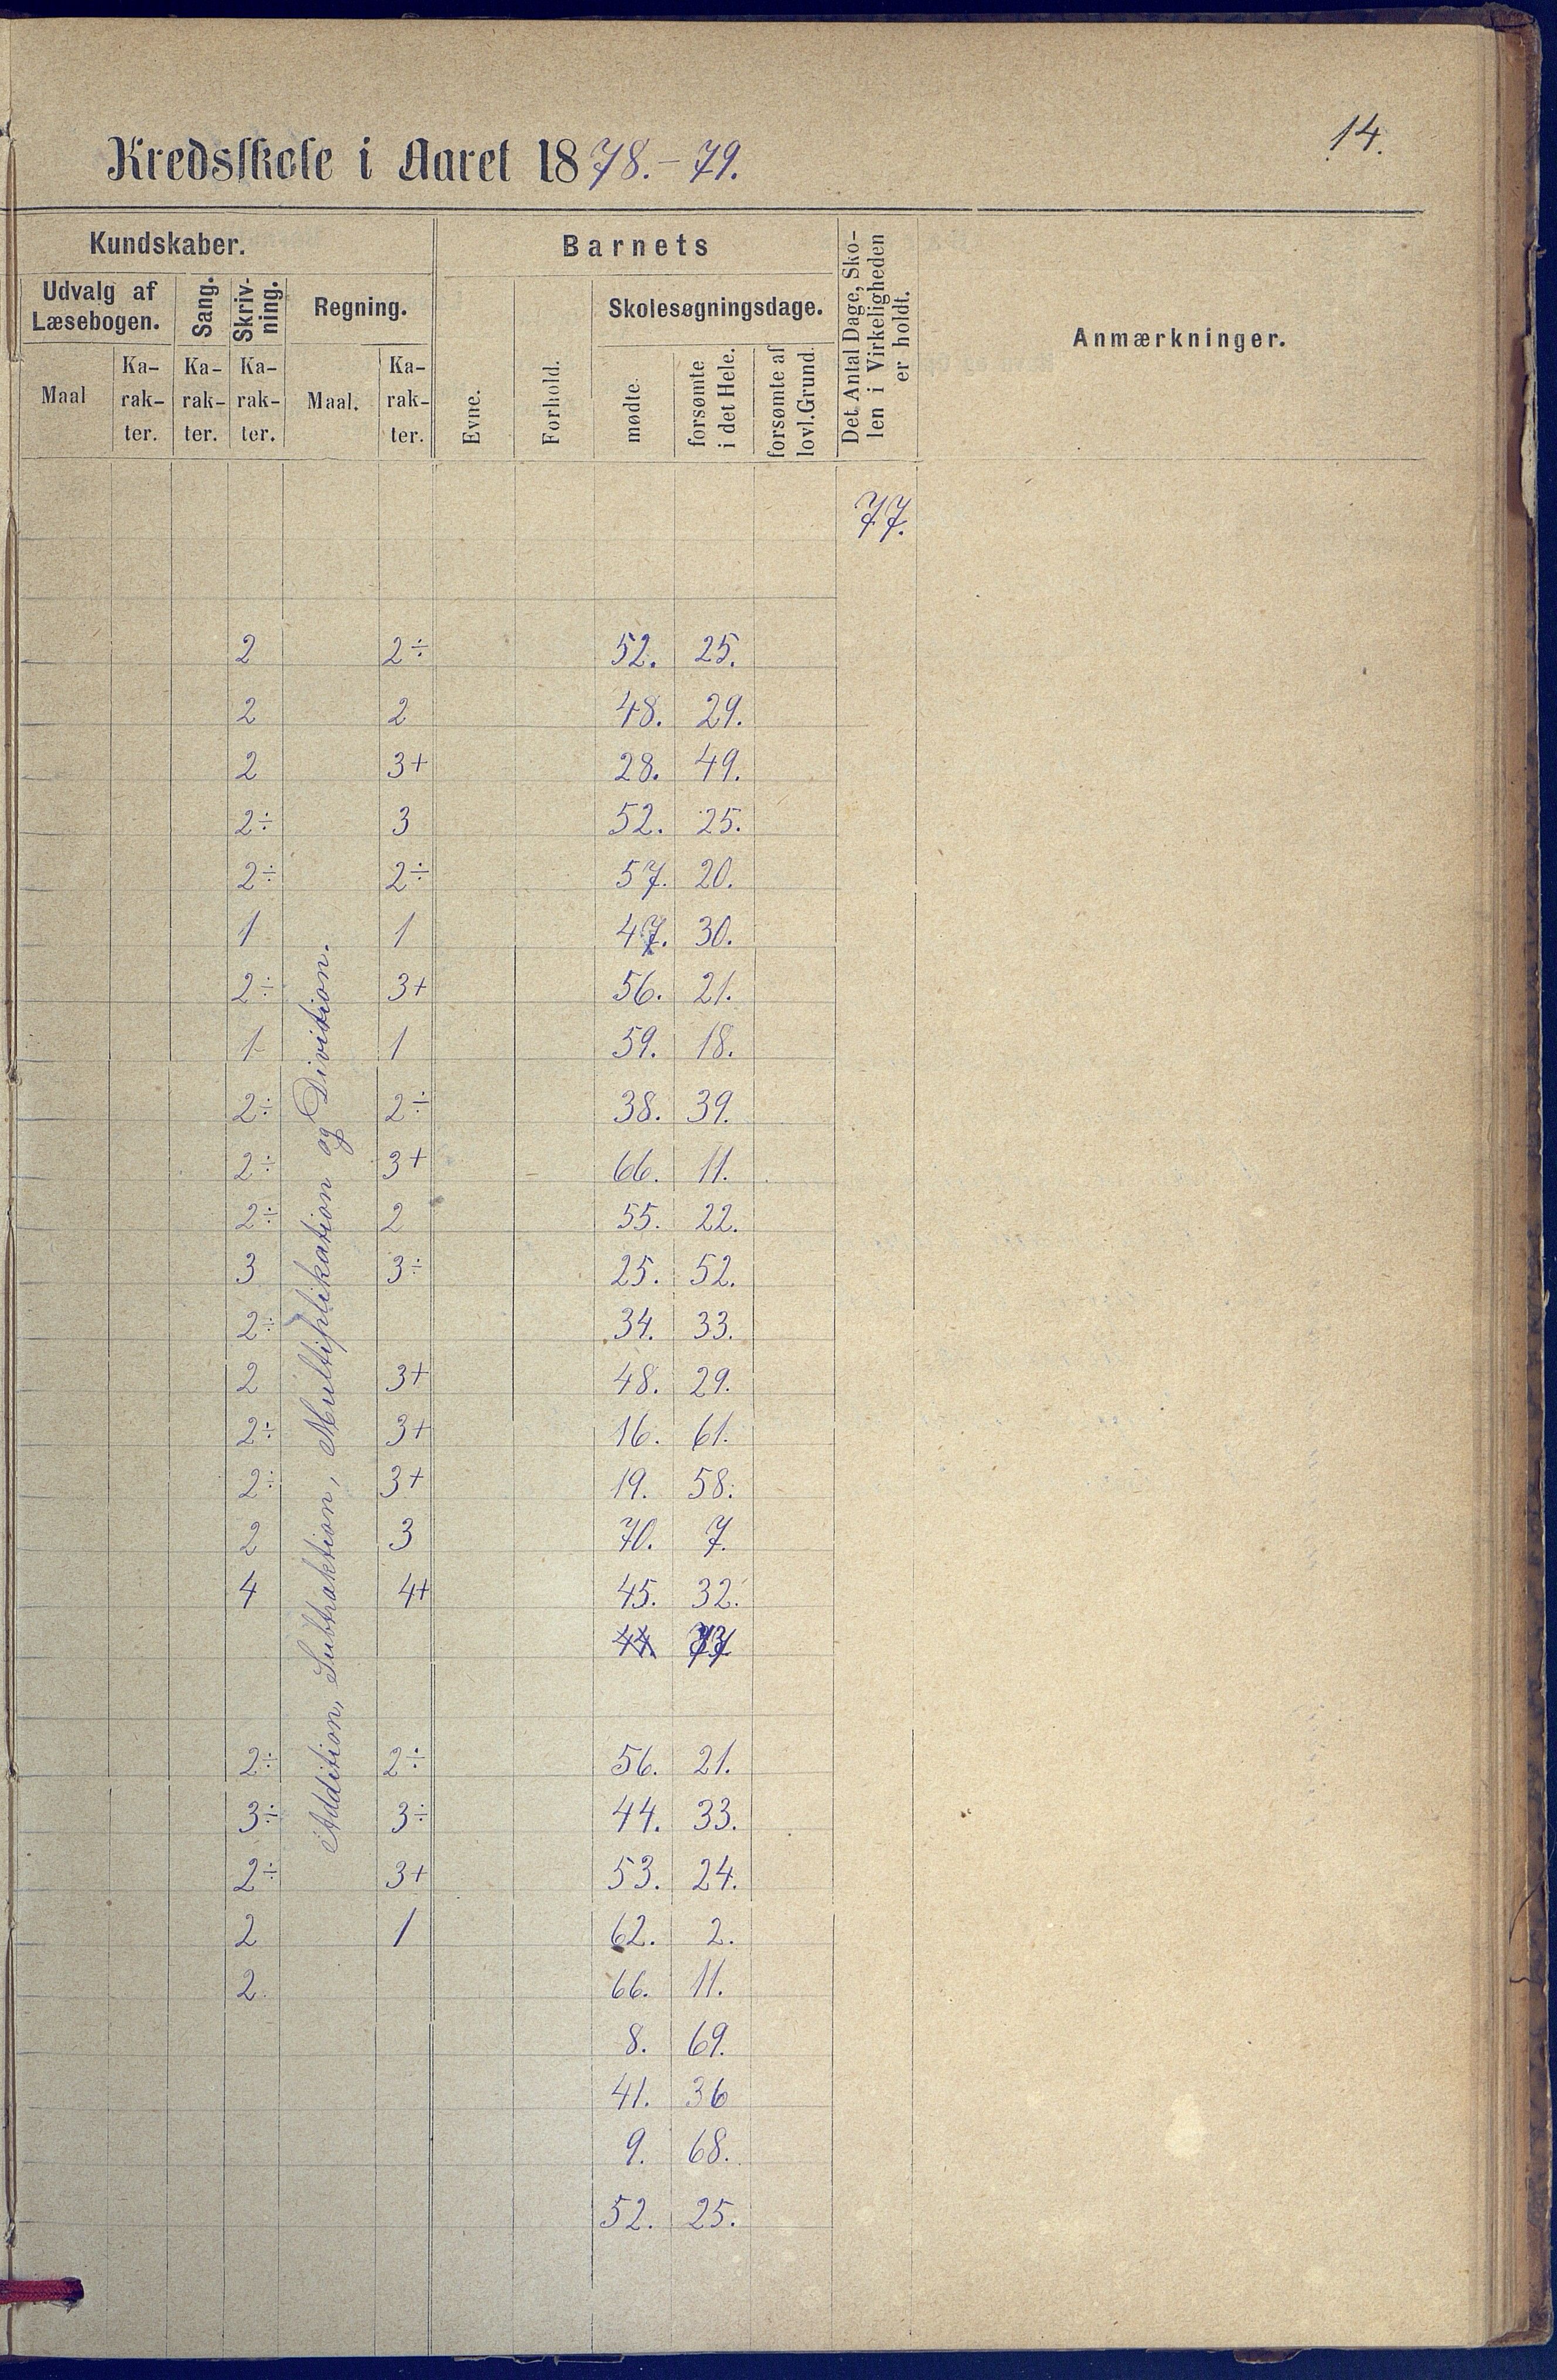 14.
Kredsskole i Aaret 1878.-79.
Kundskaber.
Barnets
Det Antal Dage, Sko-
len i Virkeligheden
er holdt.
Anmærkninger.
Udvalg af
Læsebogen.
Sang.
Skriv-
ning.
Regning.
Skolesøgningsdage.
Maal
Ka-
rak-
ter.
Ka-
rak-
ter.
Ka-
rak-
ter.
Maal.
Ka-
rak-
ter.
Evne.
Forhold.
mødte.
forsømte
i det Hele.
forsømte af
lovl. Grund.
77.
Addition, Subtraktion, Multiplikation og Divition.
2 2÷ 52. 25.
2 2 48. 29.
2 3+ 28. 49.
2÷ 3 52. 25.
2÷ 2÷ 57. 20.
1 1 47. 30.
2÷ 3+ 56. 21.
1 1 59. 18.
2÷ 2÷ 38. 39.
2÷ 3+ 66. 11.
2÷ 2 55. 22.
3 3÷ 25. 52.
2÷ 34. 33.
2 3+ 48. 29.
2÷ 3+ 16. 61.
2÷ 3+ 19. 58.
2 3 70. 7.
4 4+ 45. 32.
44
2÷ 2÷ 56. 21.
3÷ 3÷ 44. 33.
2÷ 3+ 53. 24.
2 1 62. 2.
2. 66. 11.
8. 69.
41. 36
9. 68.
52. 25.